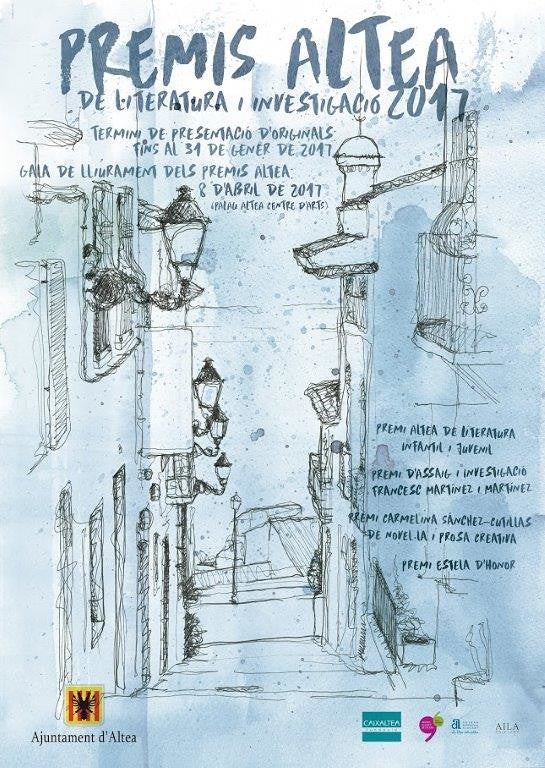 PREMIS ALTEA
DE LITERATURA I INVESTIGACIÓ 2017
TERMINI DE PRESENTACIÓ D'ORIGINALS
FINS AL 31 DE GENER DE 2017
GALA DE LLIURAMENT DELS PREMIS ALTEA
8 D'ABRIL DE 2017
(PALAU ALTEA CENTRE D'ARTS)
PREMI ALTEA DE LITERATURA
INFANTIL I JUVENIL
PREMI D'ASSAIG I INVESTIGACIÓ
FRANCESC MARTÍNEZ I MARTÍNEZ
PREMI CARMELINA SÁNCHEZ-CUTILLAS
DE NOVEL·LA I PROSA CREATIVA
PREMI ESTELA D'HONOR
Ajuntament d'Altea
CAIXALTEA
AILA